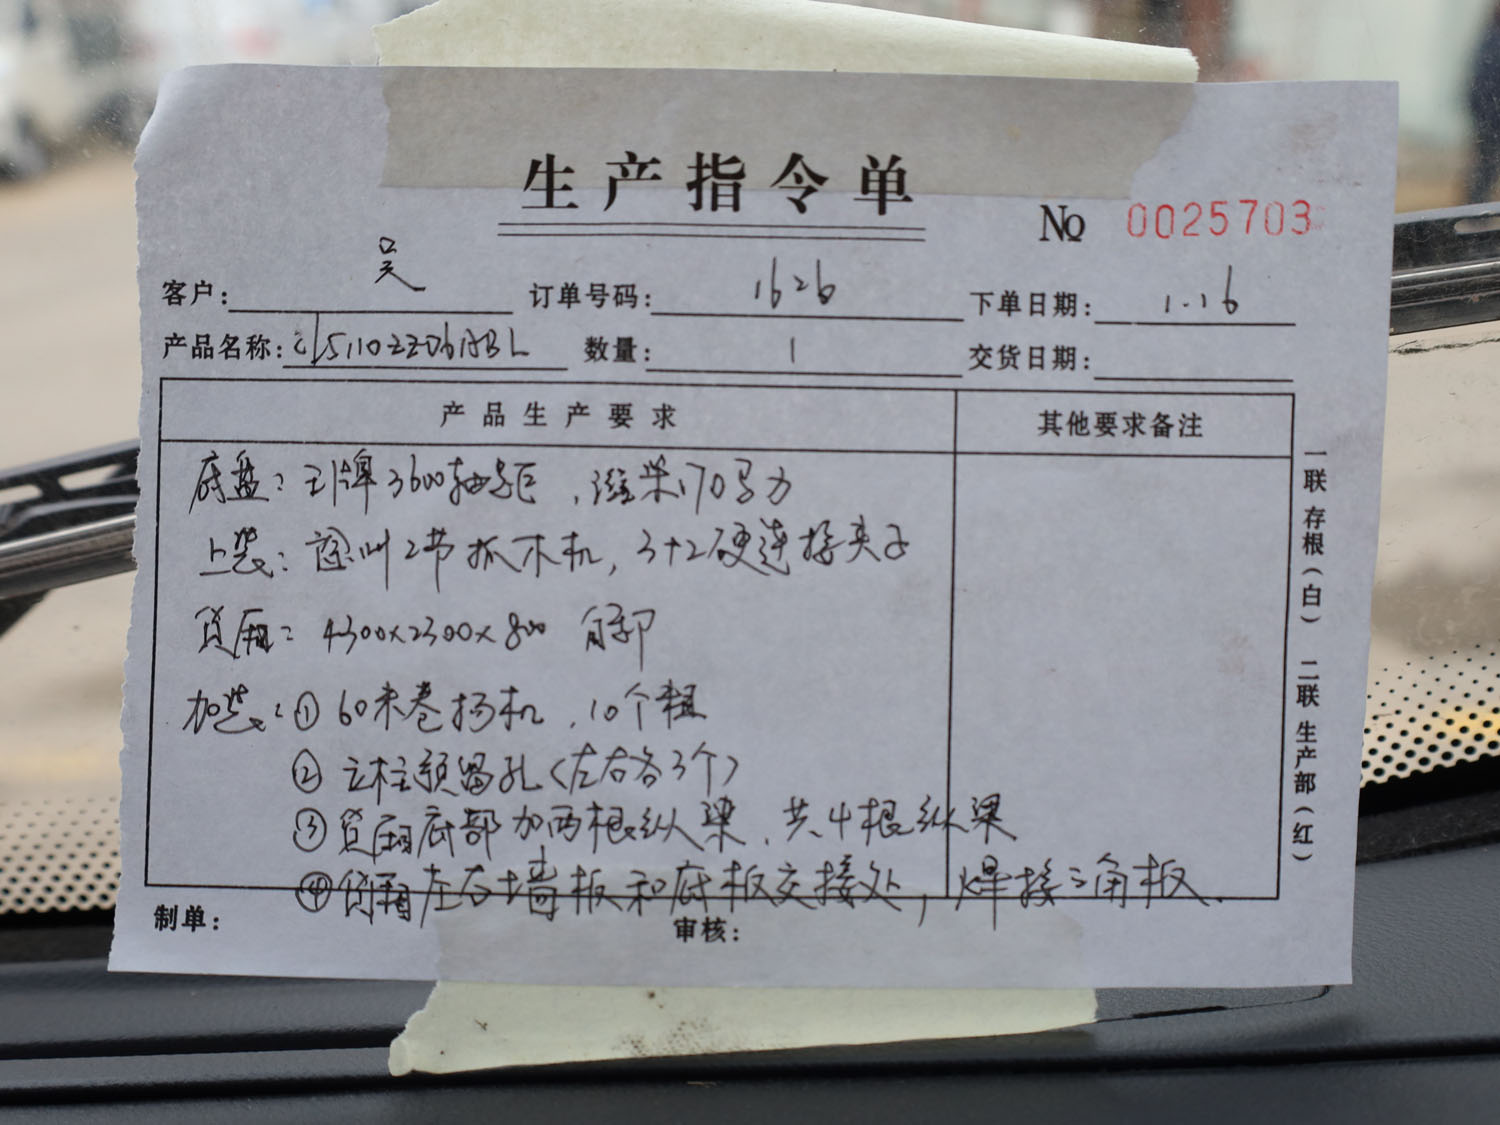 生产指令单
No 0025703
客户: 吴 订单号码: 1626 下单日期: 1.16
产品名称: 数量: 1 交货日期:
产品生产要求 其他要求备注
底盘: 王牌3600轴距,潍柴170马力
上装: 2节抓木机, 3+2硬连接夹子
货厢: 4300x2300x800 自卸
加装: ① 60米卷扬机,10个
② 立柱预留孔(左右各3个)
③ 货厢底部加两根纵梁.共4根纵梁
④ 货厢左右墙板和底板交接处,焊接三角板.
制单: 审核:
一联存根(白) 二联生产部(红)